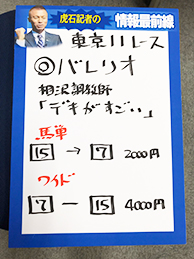 虎石記者の
情報最前線
東京11レース
◎バレリオ
相沢調教師
「デキがすごい」
馬単
15 → 7 2000円
ワイド
7 ー 15 4000円